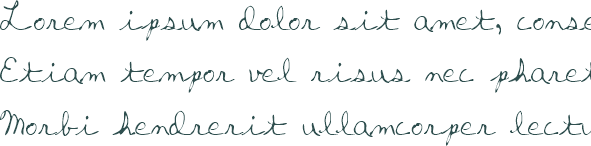 Lorem ipsum dolor sit amet, conse
Etiam tempor vel risus nec pharet
Morbi hendrerit ullamcorper lectu